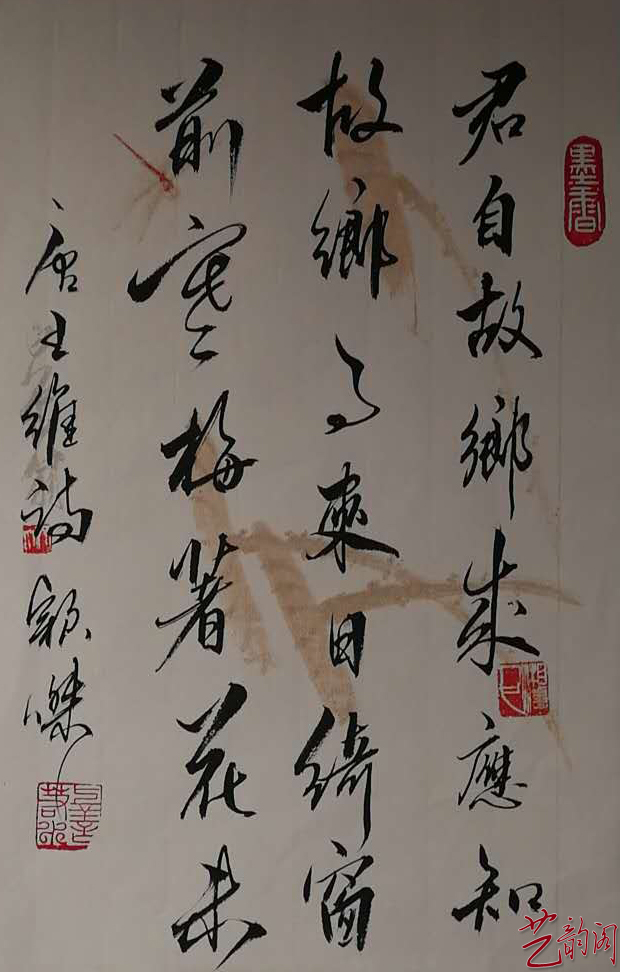 墨香
君自故鄉來應知
故鄉事來日綺窗
前寒梅著花未
唐王維詩
艺韵阁